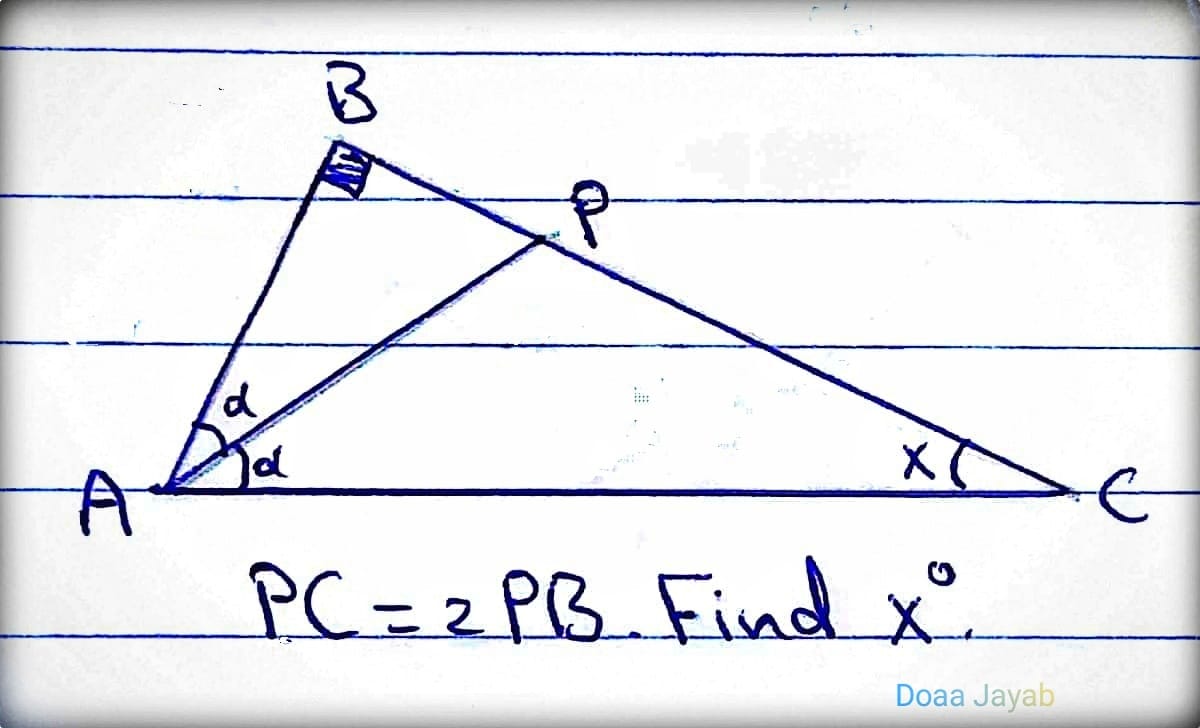 B
P
α
α
x
A
C
PC = 2PB. Find x°.
Doaa Jayab